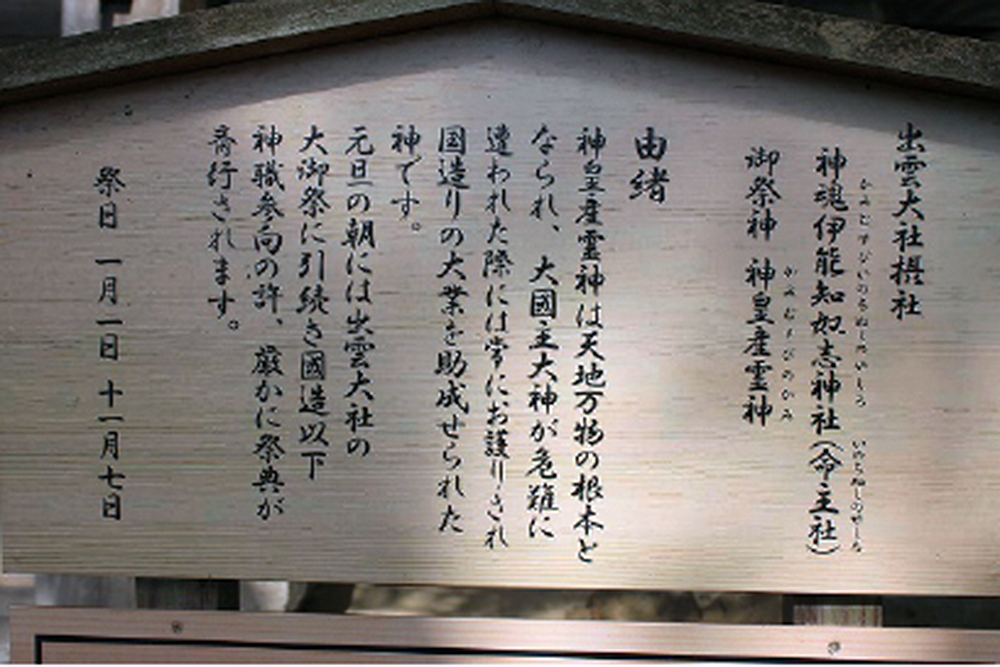 出雲大社摂社
かみむすびいのちぬしのやしろ
いのちぬしのやしろ
神魂伊能知奴志神社(命主社)
かみむすびのかみ
御祭神 神皇産霊神
由緒
神皇産霊神は天地万物の根本と
なられ、大國主大神が危難に
遭われた際には常にお護りされ
国造りの大業を助成せられた
神です。
元旦の朝には出雲大社の
大御祭に引続き國造以下
神職参向の許、厳かに祭典が
斎行されます。
祭日 一月一日 十一月七日